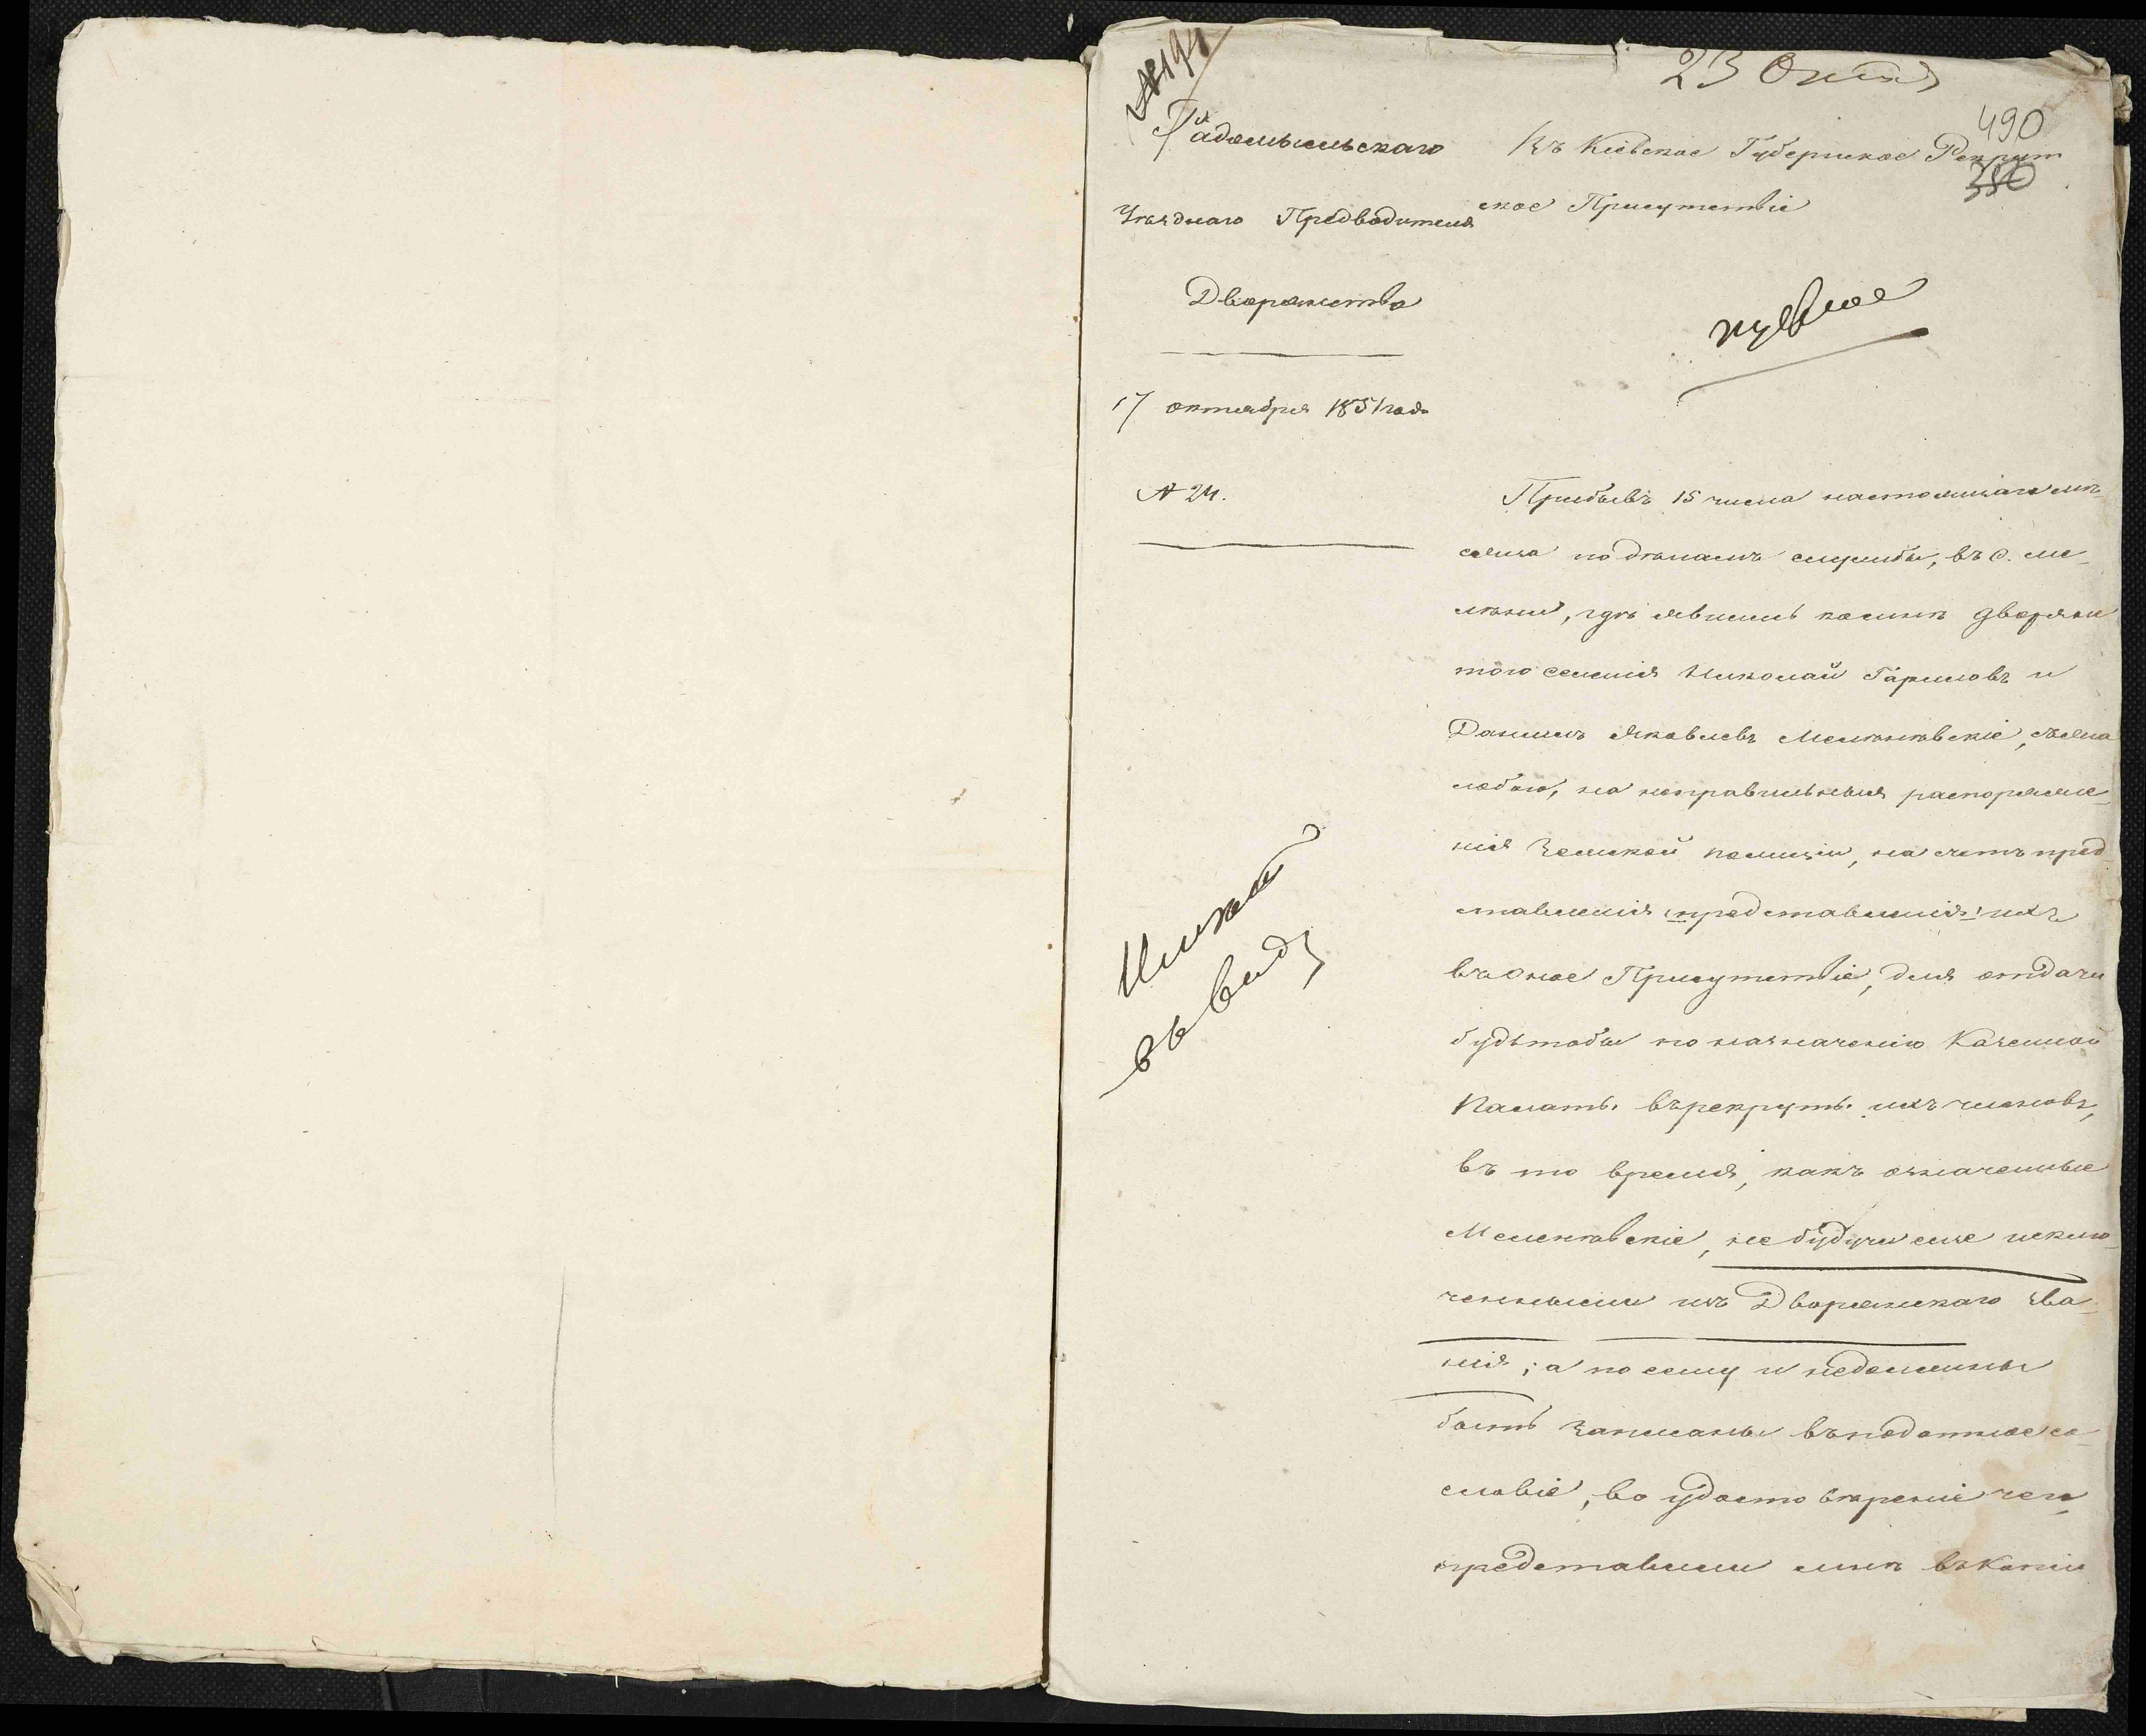 № 191
23 Октя
490
350
Радомысльскаго
Уѣзднаго Предводителя
Дворянства
17 октября 1851 года
№ 24.
Въ Кіевское Губернское Рекрут
ское Присутствіе
нужное
Имѣть
въ виду
Прибывъ 15 числа настоящаго мѣ-
сяца по дѣламъ службы, въ с. Ме-
лѣни, гдѣ явились ко мнѣ дворяне
того селенія Николай Гариловъ и
Данилъ Яковлевъ Мелѣневскіе, съ жа
лобою, на неправильныя распоряже-
нія Земской полиціи, на счетъ пред
ставленія представленія ихъ
въ оное Присутствіе, для отдачи
будьтобы по назначенію Казенной
Палаты въ рекруты ихъ членовъ,
въ то время, какъ означенные
Меленевскіе, не будучи еще исклю-
ченными изъ Дворянскаго зва-
нія; а по сему и недолжны
быть записаны въ податное со-
словіе, во удостовѣреніе чего
представили мнѣ въ копіи